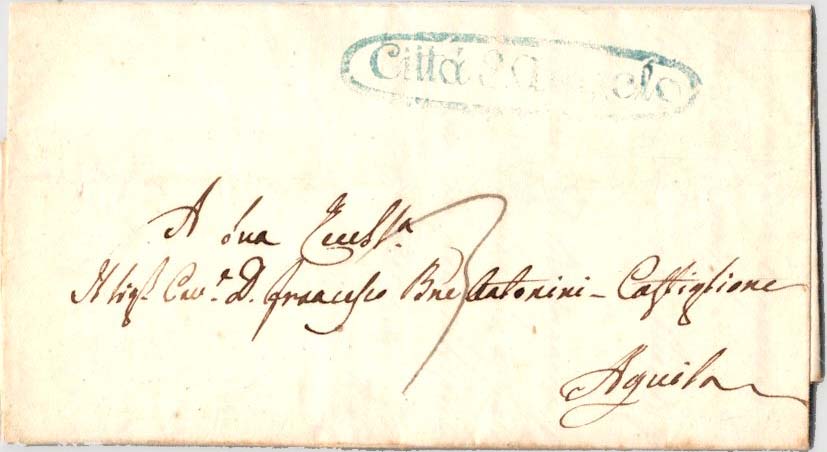 Città S. Angelo
A Sua Eccell.ª
Il Sig.r Cav.r D. Francesco B.ne Antonini - Castiglione
Aquila